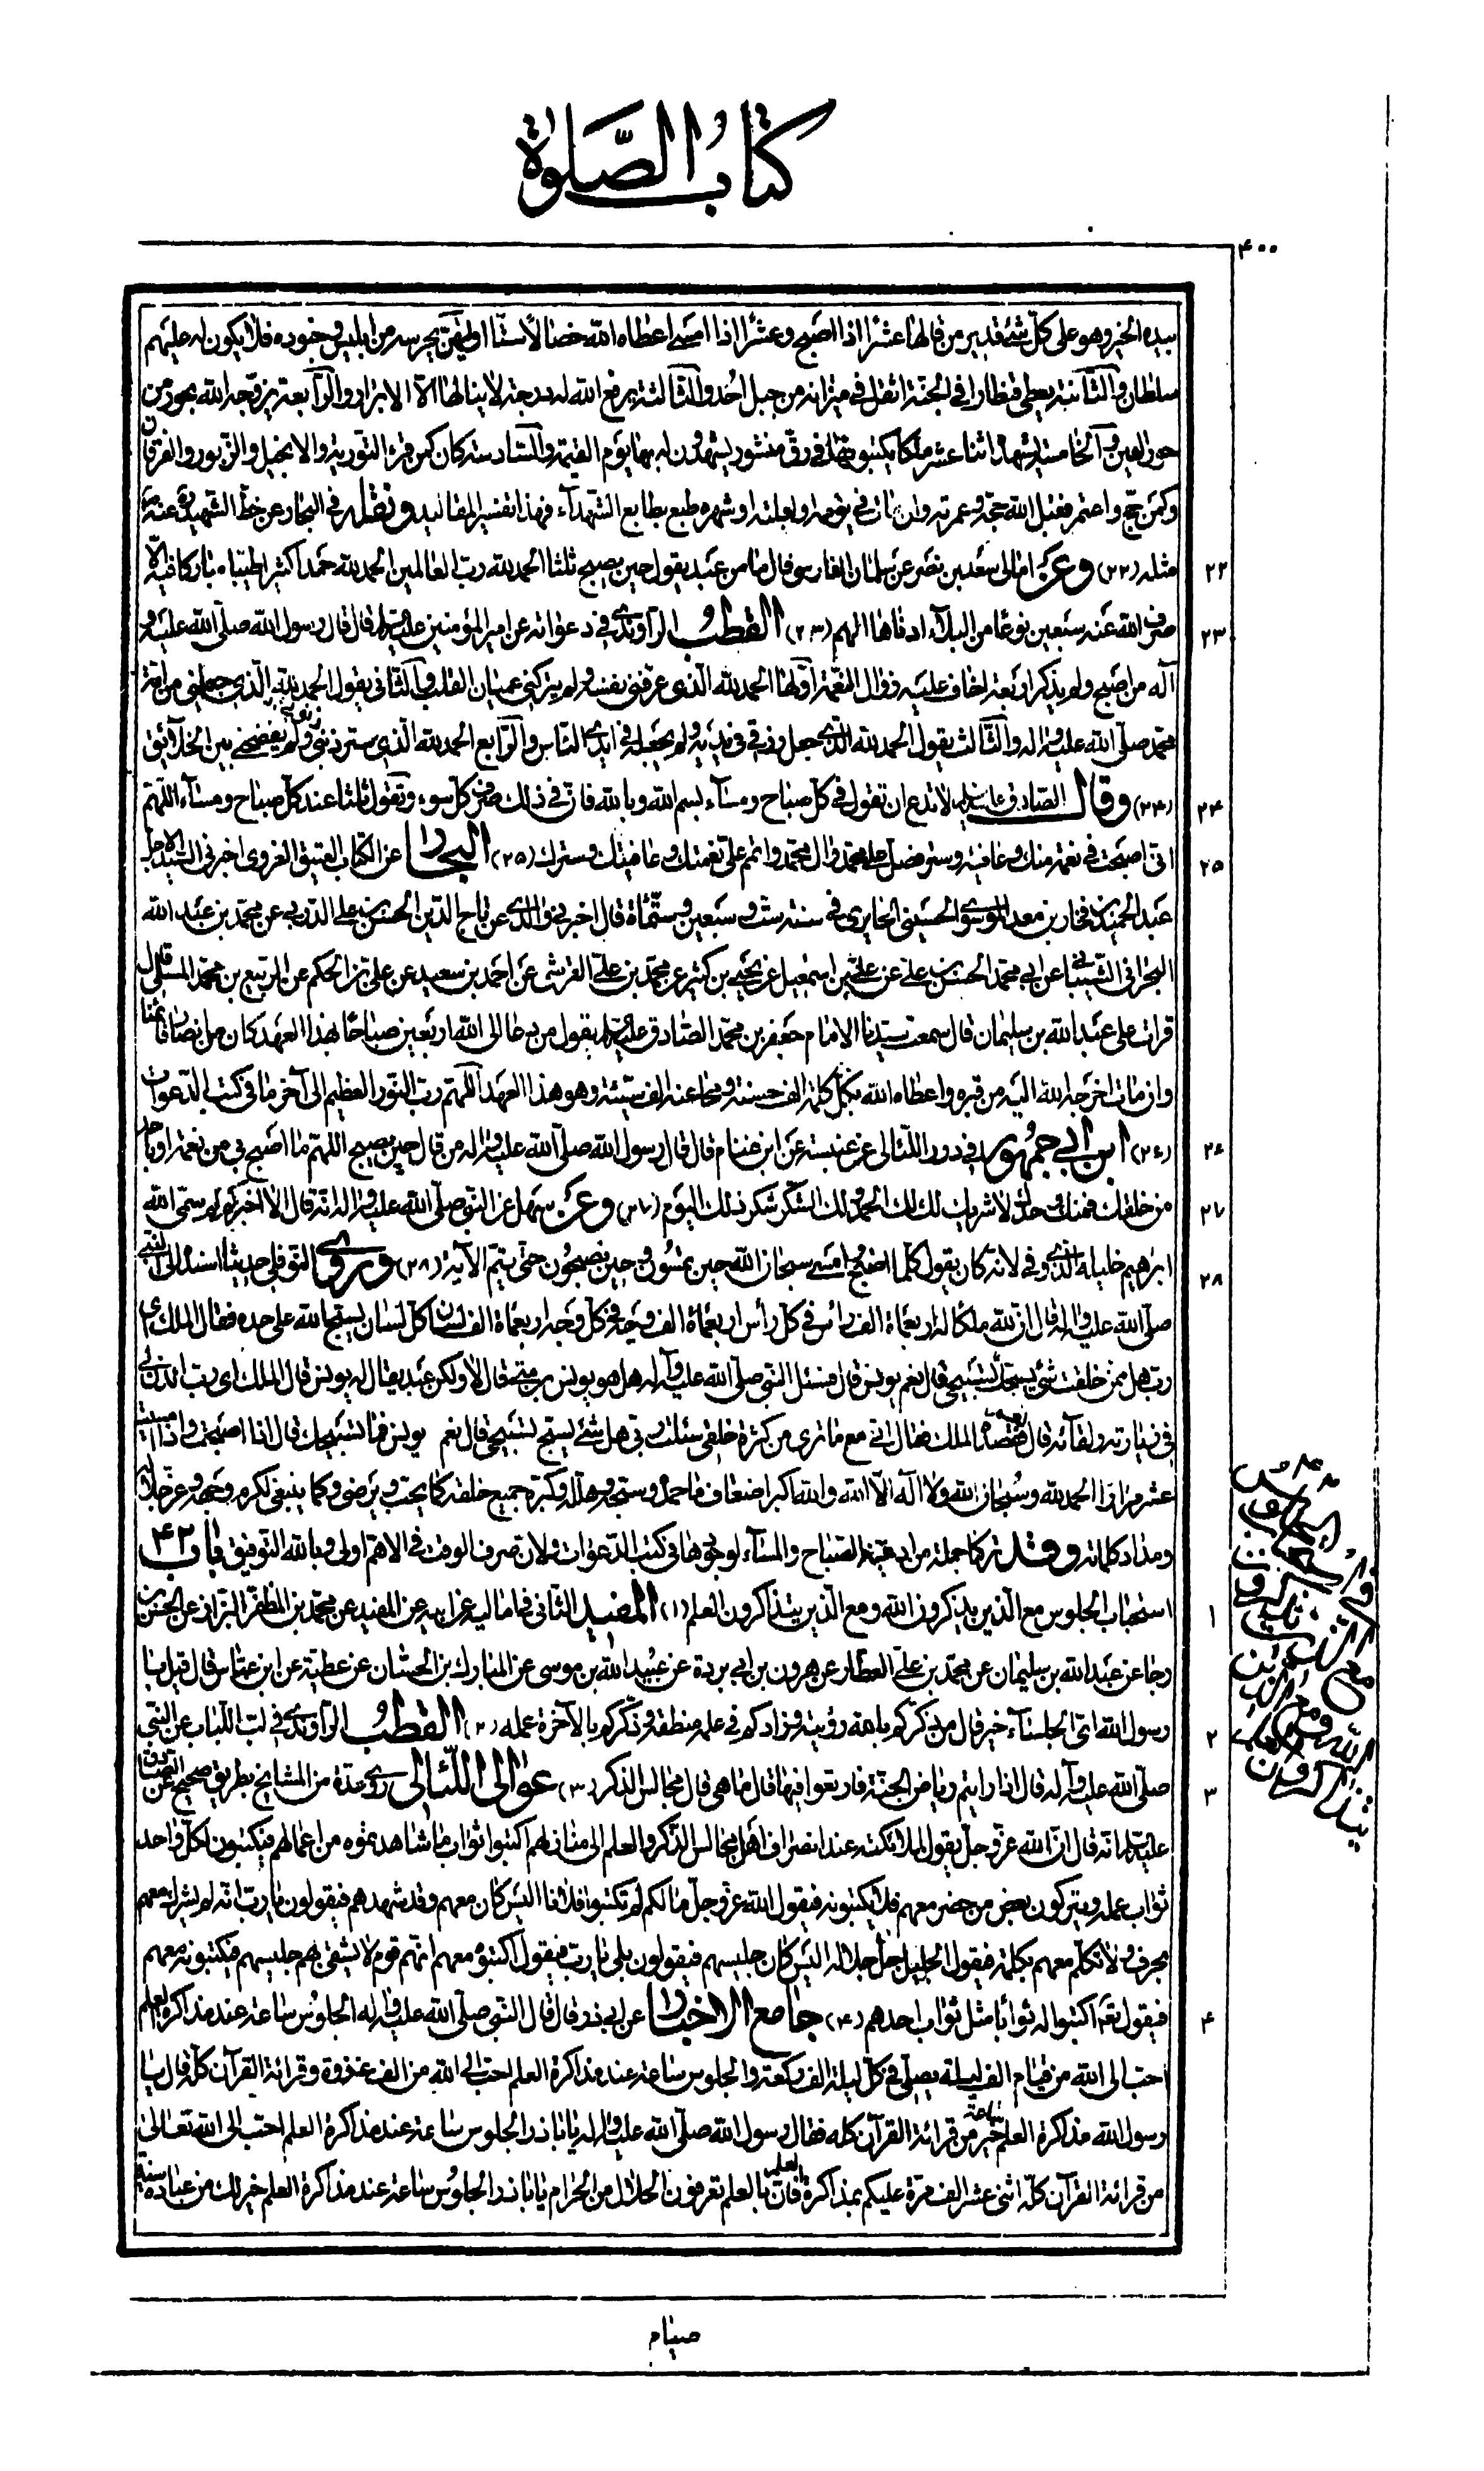 كتاب الصلوة
۴۰۰
بيده الخير وهو على كل شئ قدير من قالها عشرًا اذا اصبح وعشرًا اذا امسى اعطاه الله خصالًا ستًا اولهن يحرسه من ابليس وجنوده فلا يكون له عليهم
سلطان والثانية يعطى قنطارا في الجنة اثقل في ميزانه من جبل اُحُد والثالثة يرفع الله له درجة لا ينالها الّا الابرار والرابعة يزوجه الله بحورٍ من
حور العين والخامسة يشهد اثنا عشر ملكا يكتبونها في رق منشور يشهدون له بها يوم القيمة والسادسة كان كمن قرء التورية والانجيل والزبور والفرقان
وكمن حج واعتمر فقبل الله حجته وعمرته وان مات في يومه او ليلته او شهره طبع بطابع الشهدآء فهذا تفسير المقاليد ونقله في البحار عن خط الشهيد ره عنه ص
مثله (۲۲) وعن امالى سعد بن نصر عن سلمان الفارسى قال ما من عبد يقول حين يصبح ثلثا الحمد لله رب العالمين الحمد لله حمدا كثيرا طيبا مباركا فيه الّا
۲۲
صرف الله عنه سبعين نوعًا من البلآء ادناها الهم (۲۳) القطب الراوندى في دعواته عن امير المؤمنين عليه السلام قال قال رسول الله صلى الله عليه و
۲۳
آله من اصبح ولم يذكر اربعة اخاف عليه زوال النعمة اولها الحمد لله الذى عرفنى نفسه ولم يتركنى عميان القلب والثانى يقول الحمد لله الذى جعلنى من امة
محمد صلى الله عليه واله والثالث يقول الحمد لله الذى جعل رزقى في يديه ولم يجعله في ايدى الناس والرابع الحمد لله الذى ستر ذنوبى ولم يفضحنى بين الخلآئق
(۲۴) وقال الصادق عليه السلام لا تدع ان تقول في كل صباح ومسآء بسم الله وبالله فان في ذلك صرف كل سوء وتقول ثلثا عند كل صباح ومسآء اللهم
۲۴
انى اصبحت في نعمة منك وعافية وستر فصل على محمد وال محمد واتمم على نعمتك وعافيتك وسترك (۲۵) البحار عن الكتاب العتيق الغروى اخبرنى السيد الاجل
۲۵
عبد الحميد بن فخار بن معد الموسوى الحسينى الحايرى في سنة ست وسبعين وستمائة قال اخبرنى والدى عن تاج الدين الحسن بن على الدربى عن محمد بن عبد الله
البحرانى الشيبانى عن ابى محمد الحسن بن على عن على بن اسمعيل عن يحيى بن كثير عن محمد بن على القرشى عن احمد بن سعيد عن على بن الحكم عن الربيع بن محمد المسلى قال
قرات على عبد الله بن سليمان قال سمعت سيدنا الامام جعفر بن محمد الصادق عليه السلام يقول من دعا الى الله اربعين صباحًا بهذا العهد كان من انصار قائمنا
وان مات اخرجه الله اليه من قبره واعطاه الله بكل كلمة الف حسنة ومحا عنه الف سيئة وهو هذا العهد اللهم رب النور العظيم الى آخر ما في كتب الدعوات
(۲۶) ابن ابى جمهور في درر اللئالى عن عنبسة عن ابن غنام قال قال رسول الله صلى الله عليه واله من قال حين يصبح اللهم ما اصبح بى من نعمة او باحد
۲۶
من خلقك فمنك وحدك لا شريك لك لك الحمد ولك الشكر شكر ذلك اليوم (۲۷) وعن سهل عن النبى صلى الله عليه واله انه قال الا اخبركم لم سمى الله
۲۷
ابراهيم خليله الذى وفى لانه كان يقول كلما اصبح وامسى سبحان الله حين تمسون وحين تصبحون حتى يتم الآية (۲۸) وروى النوفلى حديثا اسنده الى النبى
۲۸
صلى الله عليه واله قال ان لله ملكا له اربعمائة الف رأس في كل رأس اربعمائة الف وجه في كل وجه اربعمائة الف لسان كل لسان يسبح الله على حده فقال الملك اى
رب هل ممن خلقت شئ يسبحك تسبيحى قال نعم يونس قال فسئل النبى صلى الله عليه واله هل هو يونس بن متى قال لا ولكن عبد يقال له يونس قال الملك اى رب ائذن لى
في زيارته ولقآئه قال نعم فقصده الملك فقال انى مع ما ترى من كثرة خلقى سئلت ربى هل شئ يسبح تسبيحى قال نعم يونس فما تسبيحك قال اذا اصبحت واذا امسيت
عشر مرار الحمد لله وسبحان الله ولا آله الّا الله والله اكبر اضعاف ما حمده وسبحه وهلله وكبره جميع خلقه كما يحب ويرضى وكما ينبغى لكرم وجهه وعز جلاله
ومداد كلماته وقد تركنا جملة من ادعية الصباح والمسآء لوجودها في كتب الدعوات ولان صرف الوقت في الاهم اولى وبالله التوفيق باب ۴۲
استحباب الجلوس مع الذين يذكرون الله ومع الذين يتذاكرون العلم (۱) المفيد الثانى في اماليه عن ابيه عن المفيد عن محمد بن المظفر البزاز عن الحسن بن
۱
رجا عن عبد الله بن سليمان عن محمد بن على العطار عن هرون بن ابى بردة عن عبيد الله بن موسى عن المبارك بن الحسان عن عطية عن ابن عباس قال قيل يا
رسول الله اى الجلسآء خير قال من ذكركم بالله رؤيته وزادكم في علمكم منطقه وذكركم بالآخرة عمله (۲) القطب الراوندى في لب اللباب عن النبى
۲
صلى الله عليه وآله قال اذا رايتم رياض الجنة فارتعوا فيها قال ما هى قال مجالس الذكر (۳) عوالى اللئالى روى عدة من المشايخ بطريق صحيح عن الصادق
۳
عليه السلام انه قال ان الله عز وجل يقول لملائكته عند انصراف اهل مجالس الذكر والعلم الى منازلهم اكتبوا ثواب ما شاهدتموه من اعمالهم فيكتبون لكل واحد
ثواب عمله ويتركون بعض من حضر معهم فلا يكتبونه فيقول الله عز وجل ما لكم لم تكتبوا فلانا اليس كان معهم وقد شهدهم فيقولون يا رب انه لم يشرك معهم
بحرف ولا تكلم معهم بكلمة فيقول الجليل جل جلاله اليس كان جليسهم فيقولون بلى يا رب فيقول اكتبوه معهم انهم قوم لا يشقى بهم جليسهم فيكتبونه معهم
فيقول تعالى اكتبوا له ثوابًا مثل ثواب احدهم (۴) جامع الاخبار عن ابى ذر قال قال النبى صلى الله عليه واله الجلوس ساعة عند مذاكرة العلم
۴
احب الى الله من قيام الف ليلة يصلى في كل ليلة الف ركعة والجلوس ساعة عند مذاكرة العلم احب الى الله من الف غزوة وقرائة القرآن كله قال يا
رسول الله مذاكرة العلم ساعة خير من قرائة القرآن كله فقال رسول الله صلى الله عليه واله يا ابا ذر الجلوس ساعة عند مذاكرة العلم احب الى الله تعالى
من قرائة القرآن كله اثنى عشر الف مرة عليكم بمذاكرة العلم فان بالعلم تعرفون الحلال من الحرام يا ابا ذر الجلوس ساعة عند مذاكرة العلم خير لك من عبادة سنة
صيام